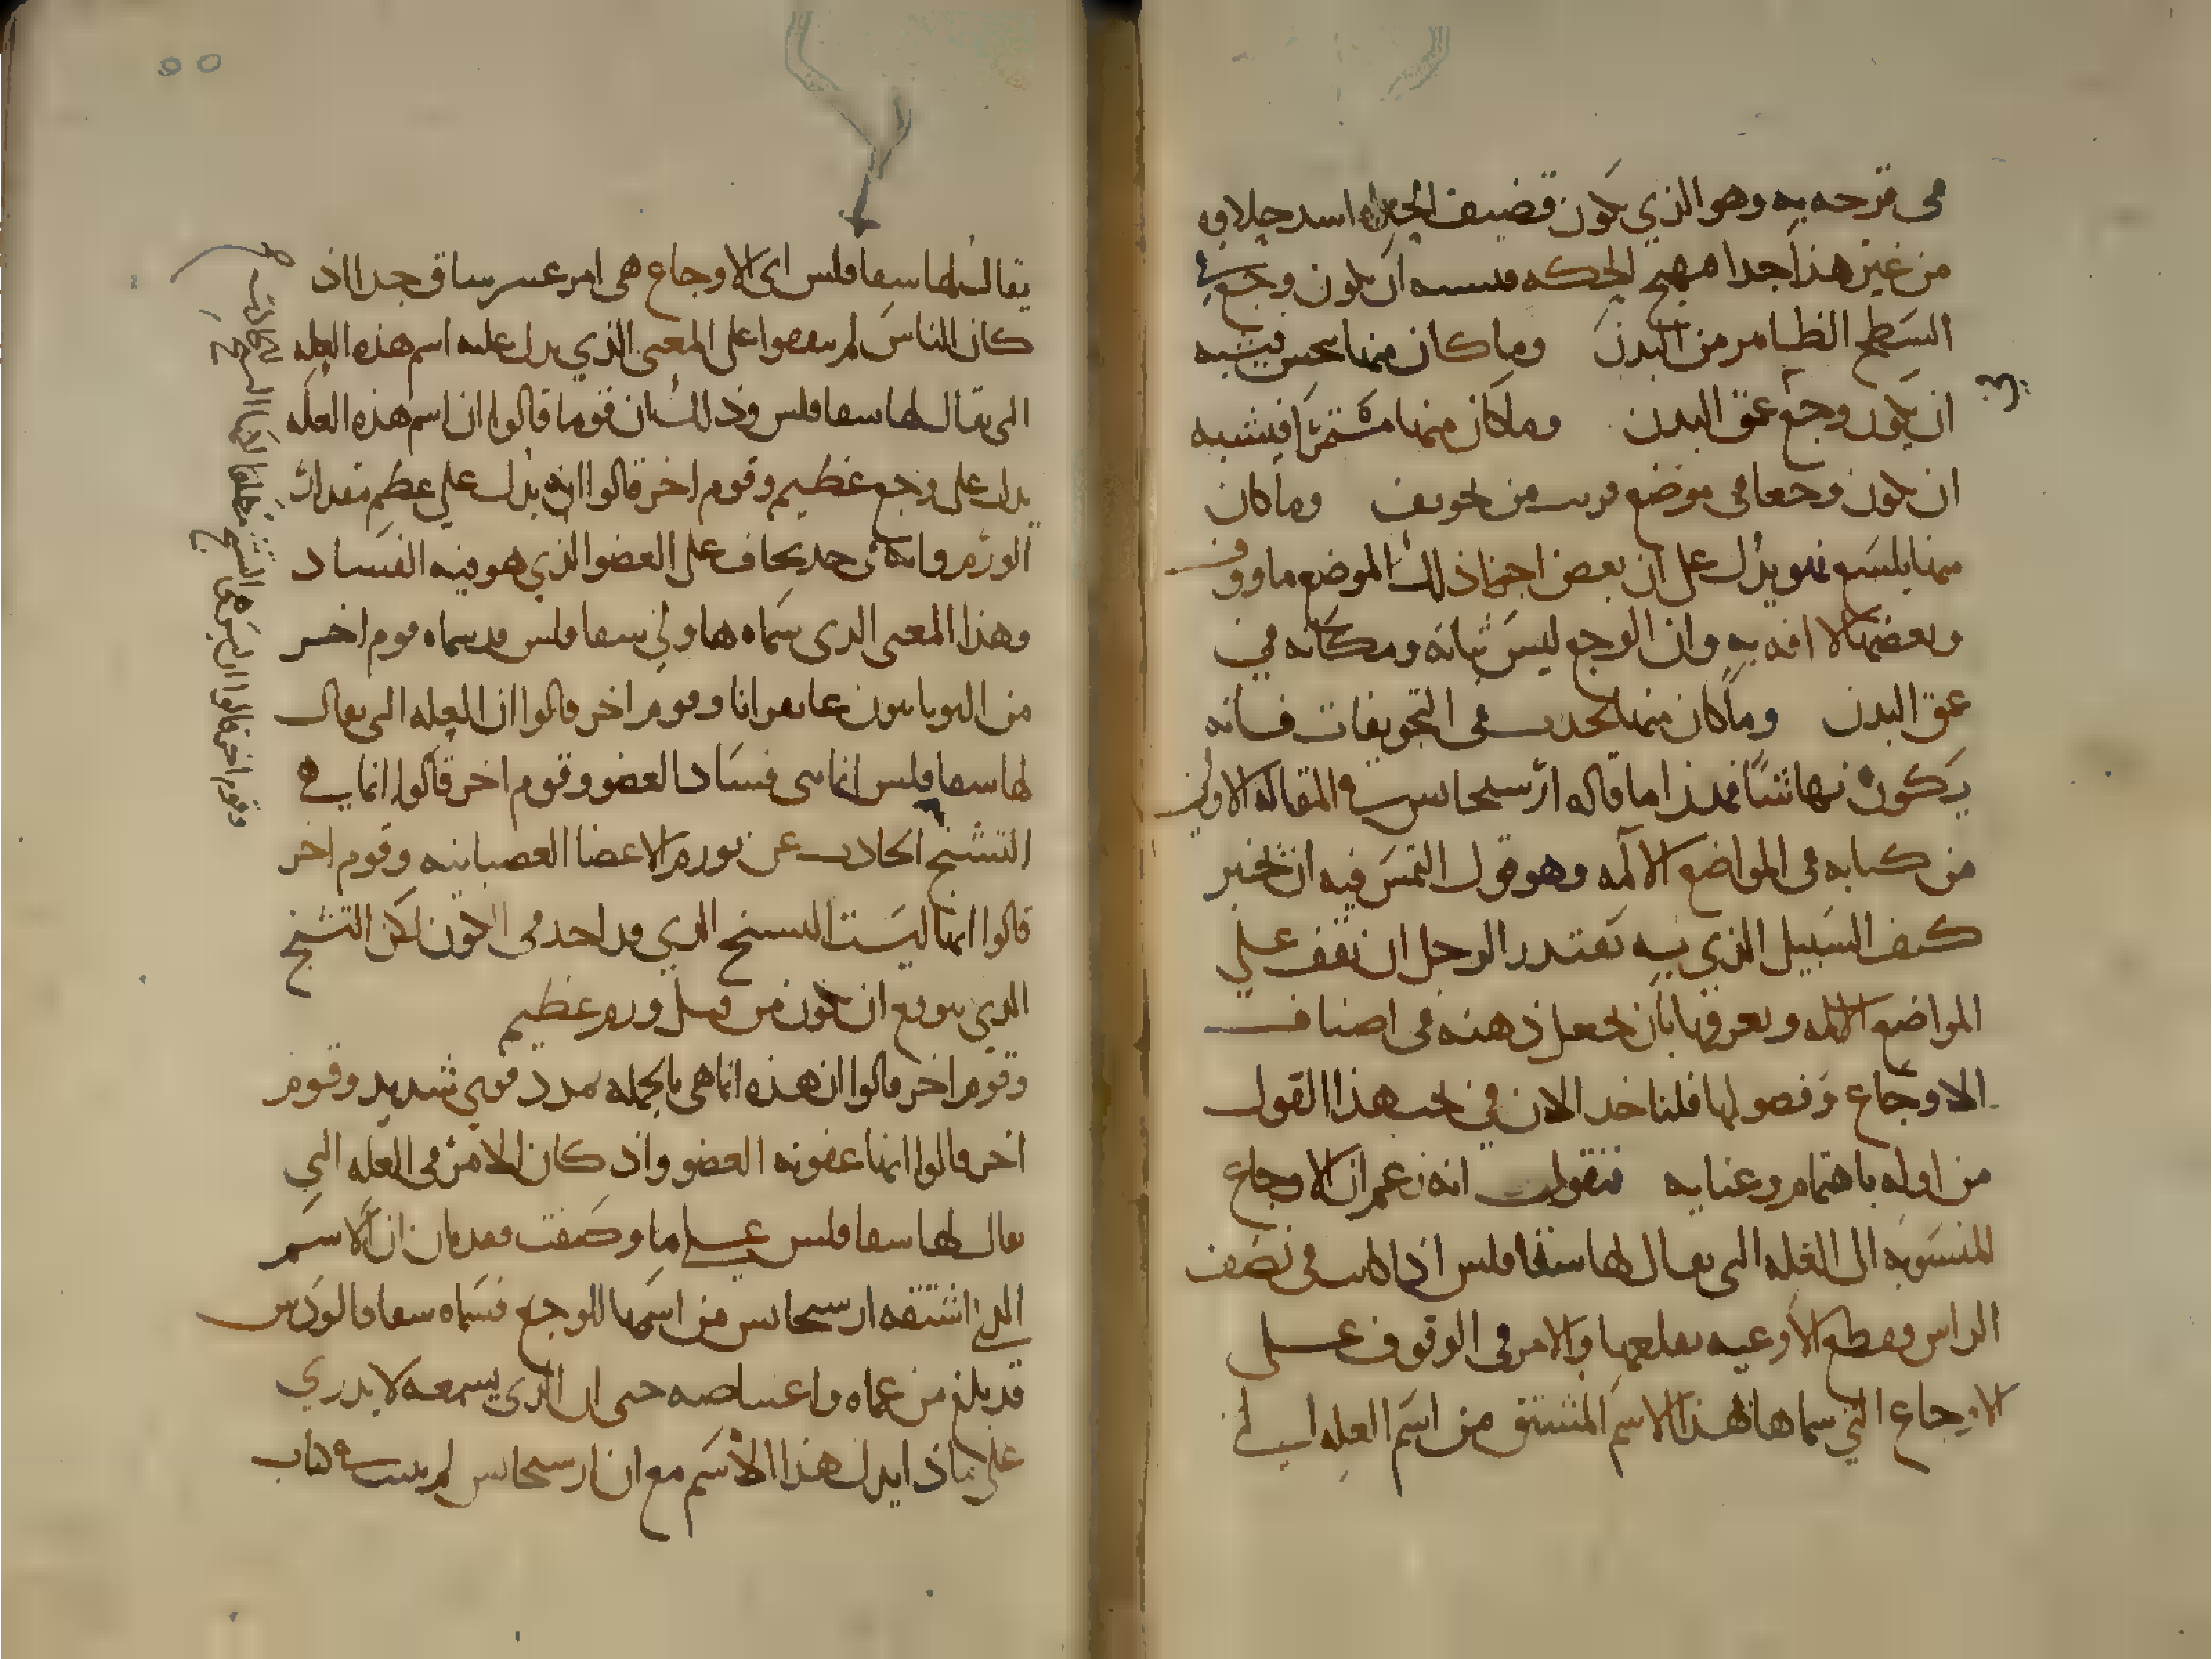 في قرحه به وهو الذي يكون قضيف الجلد اسد جلا فه
من غير هذا جدا مهيج الحكه فيشبه ان يكون وجع في
السطح الظاهر من البدن وما كان منها يحس فيشبه
ان يكون وجع عمق البدن وما كان منها مستمرا فيشبه
ان يكون وجعا في موضع قريب من تجويف وما كان
منها يلسع فهو يدل على ان بعض اجزا ذلك الموضع ماووف
وبعضها لا افه به وان الوجع ليس ثباته ومكانه في
عمق البدن وما كان منها يحدث في التجويفات فانه
يكون نهاشا فهذا ما قاله ارسيجانس في المقالة الاولى
من كتابه في المواضع الالمه وهو قول التمس فيه ان يخبر
كيف السبيل الذي به يقتدر الرجل ان يقف على
المواضع الالمه ويعرفها بان يجعل ذهنه في اصناف
الاوجاع وفصولها فلناخذ الان في بحث هذا القول
من اوله باهتمام وعنايه فنقول انه زعم ان الاوجاع
المنسوبه الى العله التي يقال لها سفاقلس اذا كانت في نصف
الراس وقطع الاوعيه يقلعها والامر في الوقوف على
الاوجاع التي سماها بهذا الاسم المشتق من اسم العله التي
يقال لها سفاقلس اي الاوجاع هي امر عسر شاق جدا اذ
كان الناس لم يتفقوا على المعنى الذي يدل عليه اسم هذه العله
التي يقال لها سفاقلس وذلك ان قوما قالوا ان اسم هذه العله
يدل على وجع عظيم وقوم اخر قالوا انه يدل على عظم مقدار
الورم وانه في حد يخاف على العضو الذي هو فيه الفساد
وهذا المعنى الذي سماه هاولي سفاقلس قد سماه قوم اخر
من اليونانيون غانغرانا وقوم اخر قالوا ان العله التي يقال
لها سفاقلس انما هي فساد العضو وقوم اخر قالوا انما هي
التشنج الحادث عن تورم الاعضا العصبانيه وقوم اخر
قالوا انها ليست التشنج الذي قد اخذ في الكون لكن التشنج
الذي يتوقع ان يكون من قبل ورم عظيم
وقوم اخر قالوا ان هذه انما هي بالجمله تمدد قوي شديد وقوم
اخر قالوا انها عفونه العضو واذ كان الامر في العله التي
يقال لها سفاقلس على ما وصفت فقد بان ان الاسم
الذي اشتقه ارسيجانس من اسمها للوجع فسماه سفاقالودس
قد بلغ من عماه واعتياصه حتى ان الذي يسمعه لا يدري
على ماذا يدل هذا الاسم مع ان ارسيجانس لم يثبت في كتاب